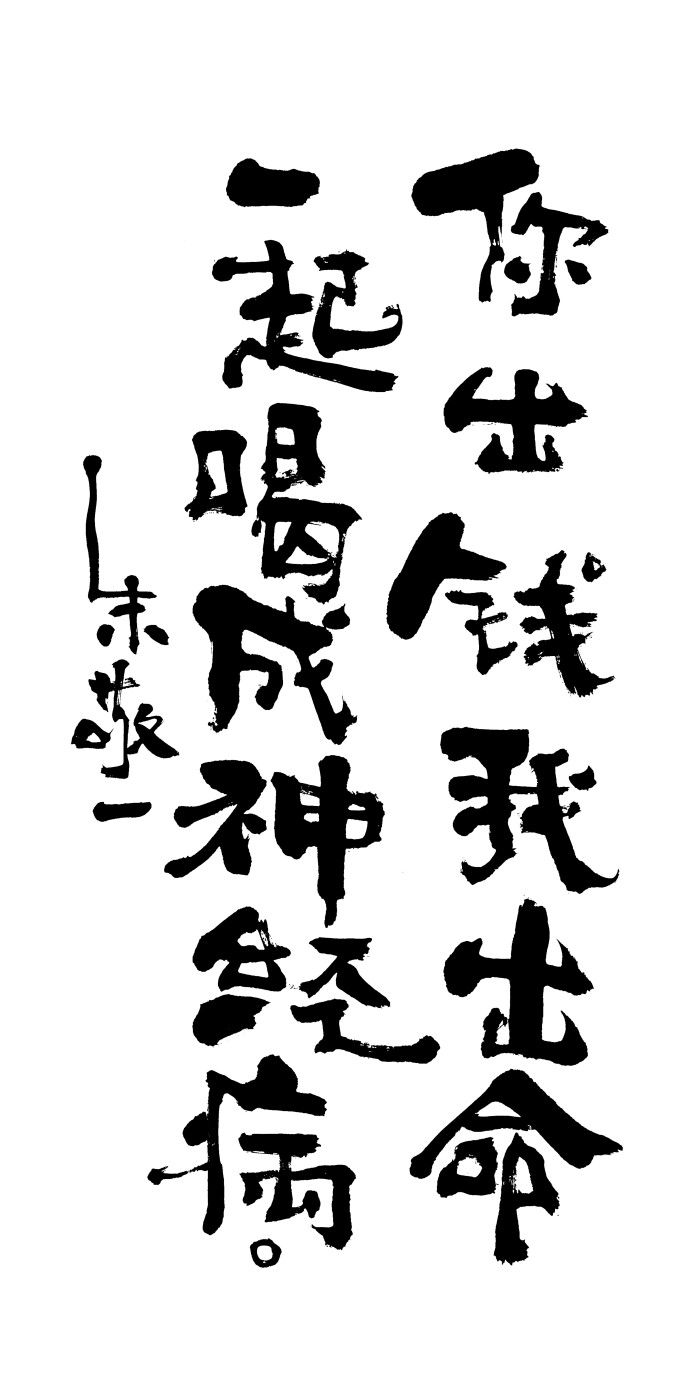 你出钱我出命
一起喝成神经病。
朱敬一